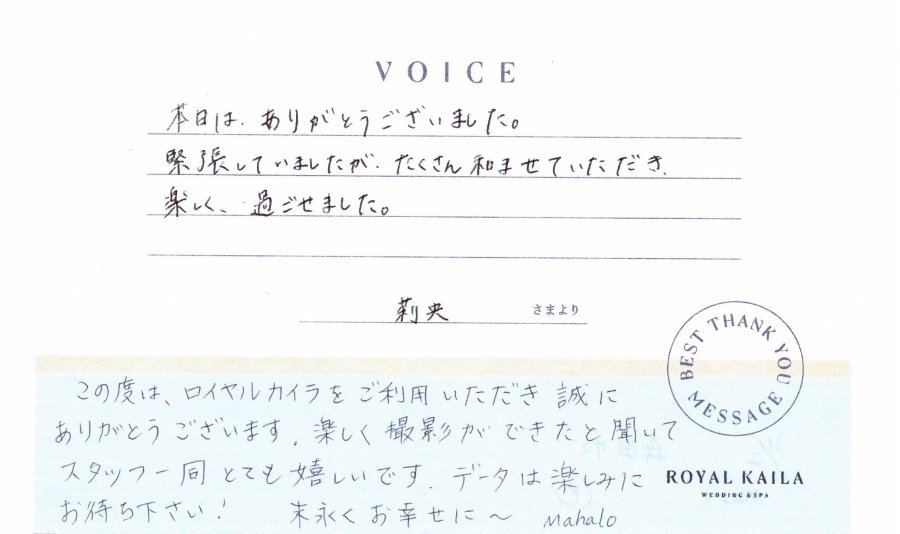 VOICE
本日は、ありがとうございました。
緊張していましたが、たくさん和ませていただき、
楽しく、過ごせました。
莉央 さまより
BEST THANK YOU MESSAGE
この度は、ロイヤルカイラをご利用いただき誠に
ありがとうございます。楽しく撮影ができたと聞いて
スタッフ一同とても嬉しいです。データは楽しみに
お待ち下さい! 末永くお幸せに〜 Mahalo
ROYAL KAILA
WEDDING & SPA